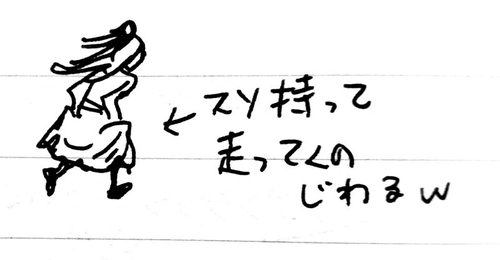 ← スソ持って
走ってくの
じわるw